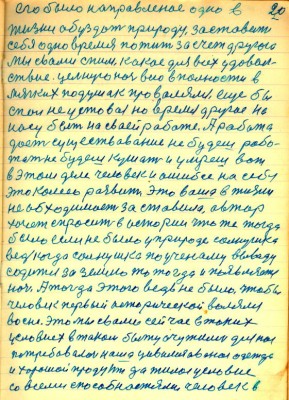 его было направленое одно в 20
жизни обуздат природу, заставит
себя одно время пожит за счет другого
Мы с вами спим, какое для всех удовол-
ствие. целую ноч в полности в
мягких подушках провалялис, еще бы
спал не уставал но время другое на
часу быт на своей работе. А работа
дает существование не будеш рабо-
тат не будеш кушат и умреш вот
в этом деле человек и ошибся на себу
это колесо развит. Это ваша в жизни
необходимост заставила, автор
хочет спросит в истории что же тогда
было если не было у природе солнушка
вед когда солнушка по ученому выводу
садится за землю то тогда и появляется
ноч. А тогда этого вед не было, чтобы
человек первый исторической валялся
во сне. Это мы с вами сейчас в таких
условиях в таком быту очутилис для нас
потребовалос наша цивилизованая одежда
и хорошой продукт да жилое условие
со всеми способностями, человек в